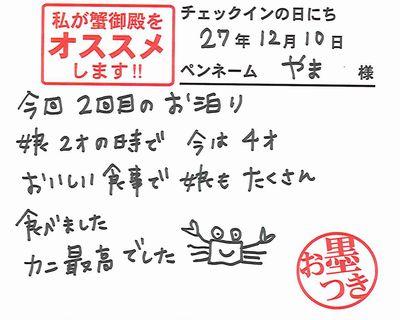 私が蟹御殿を
オススメ
します!!
チェックインの日にち
27年12月10日
ペンネーム やま 様
今回2回目のお泊り
娘2才の時で 今は4才
おいしい食事で 娘も たくさん
食べました
カニ最高でした
お墨つき